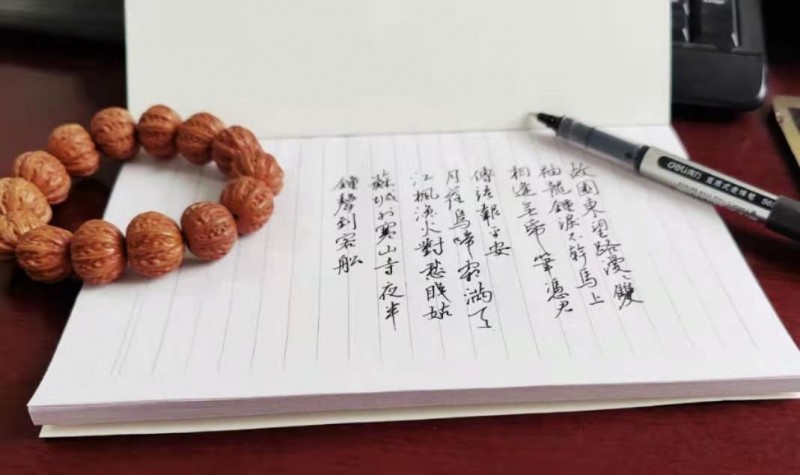 故園東望路漫〻雙
袖龍鍾淚不幹馬上
相逢無帋筆憑君
傳語報平安
月落烏啼霜滿天
江楓漁火對愁眠姑
蘇城外寒山寺夜半
鐘聲到客舩
deli得力 直液式走珠笔